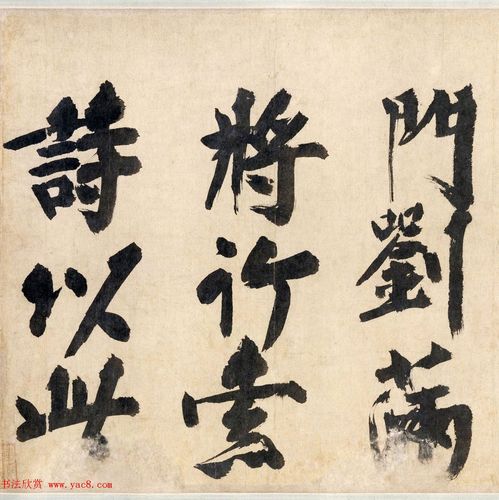 門劉
將行索
詩以此
书法欣赏 www.yac8.com